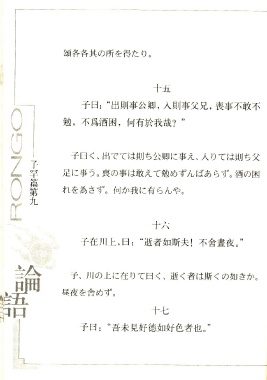 頌各各其の所を得たり。
十五
子曰：“出則事公卿，入則事父兄，喪事不敢不
勉，不爲酒困，何有於我哉？”
子曰く、出でては則ち公卿に事え、入りては則ち父
兄に事う。喪の事は敢えて勉めずんばあらず。酒の困
れを為さず。何か我に有らんや。
十六
子在川上，曰：“逝者如斯夫！不舍晝夜。”
子、川の上に在りて曰く、逝く者は斯くの如きか。
昼夜を舎めず。
十七
子曰：“吾未見好德如好色者也。”
RONGO
子罕篇第九
論
語